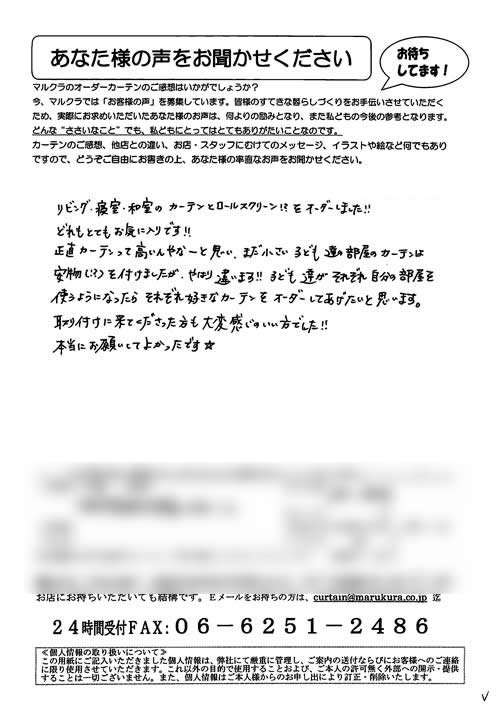 あなた様の声をお聞かせください
お待ち
してます！
マルクラのオーダーカーテンのご感想はいかがでしょうか？
今、マルクラでは「お客様の声」を募集しています。皆様のすてきな暮らしづくりをお手伝いさせていただく
ため、実際にお求めいただいたあなた様のお声は、何よりの励みとなり、また私どもの今後の参考となります。
どんな“ささいなこと”でも、私どもにとってはとてもありがたいことなのです。
カーテンのご感想、他店との違い、お店・スタッフにむけてのメッセージ、イラストや絵など何でもあり
ですので、どうぞご自由にお書きの上、あなた様の率直なお声をお聞かせください。
リビング・寝室・和室の カーテンとロールスクリーン!? をオーダーしました!!
どれもとてもお気に入りです!!
正直カーテンって高いんやなーと思い、まだ小さい子ども達の部屋のカーテンは
安物(!?)を付けましたが、やはり違います!! 子ども達がそれぞれ自分の部屋を
使うようになったら それぞれ好きなカーテンを オーダーしてあげたいと思います。
取り付けに来てくださった方も大変感じのいい方でした!!
本当にお願いしてよかったです☆
お店にお持ちいただいても結構です。Eメールをお持ちの方は、curtain@marukura.co.jp 迄
24時間受付FAX：06－6251－2486
≪個人情報の取り扱いについて≫
この用紙にご記入いただきました個人情報は、弊社にて厳重に管理し、ご案内の送付ならびにお客様へのご連絡
に限り使用させていただきます。これ以外の目的で使用することおよび、ご本人の許可無く外部への開示・提供
することは一切ございません。また、個人情報はご本人様からのお申し出により訂正・削除いたします。